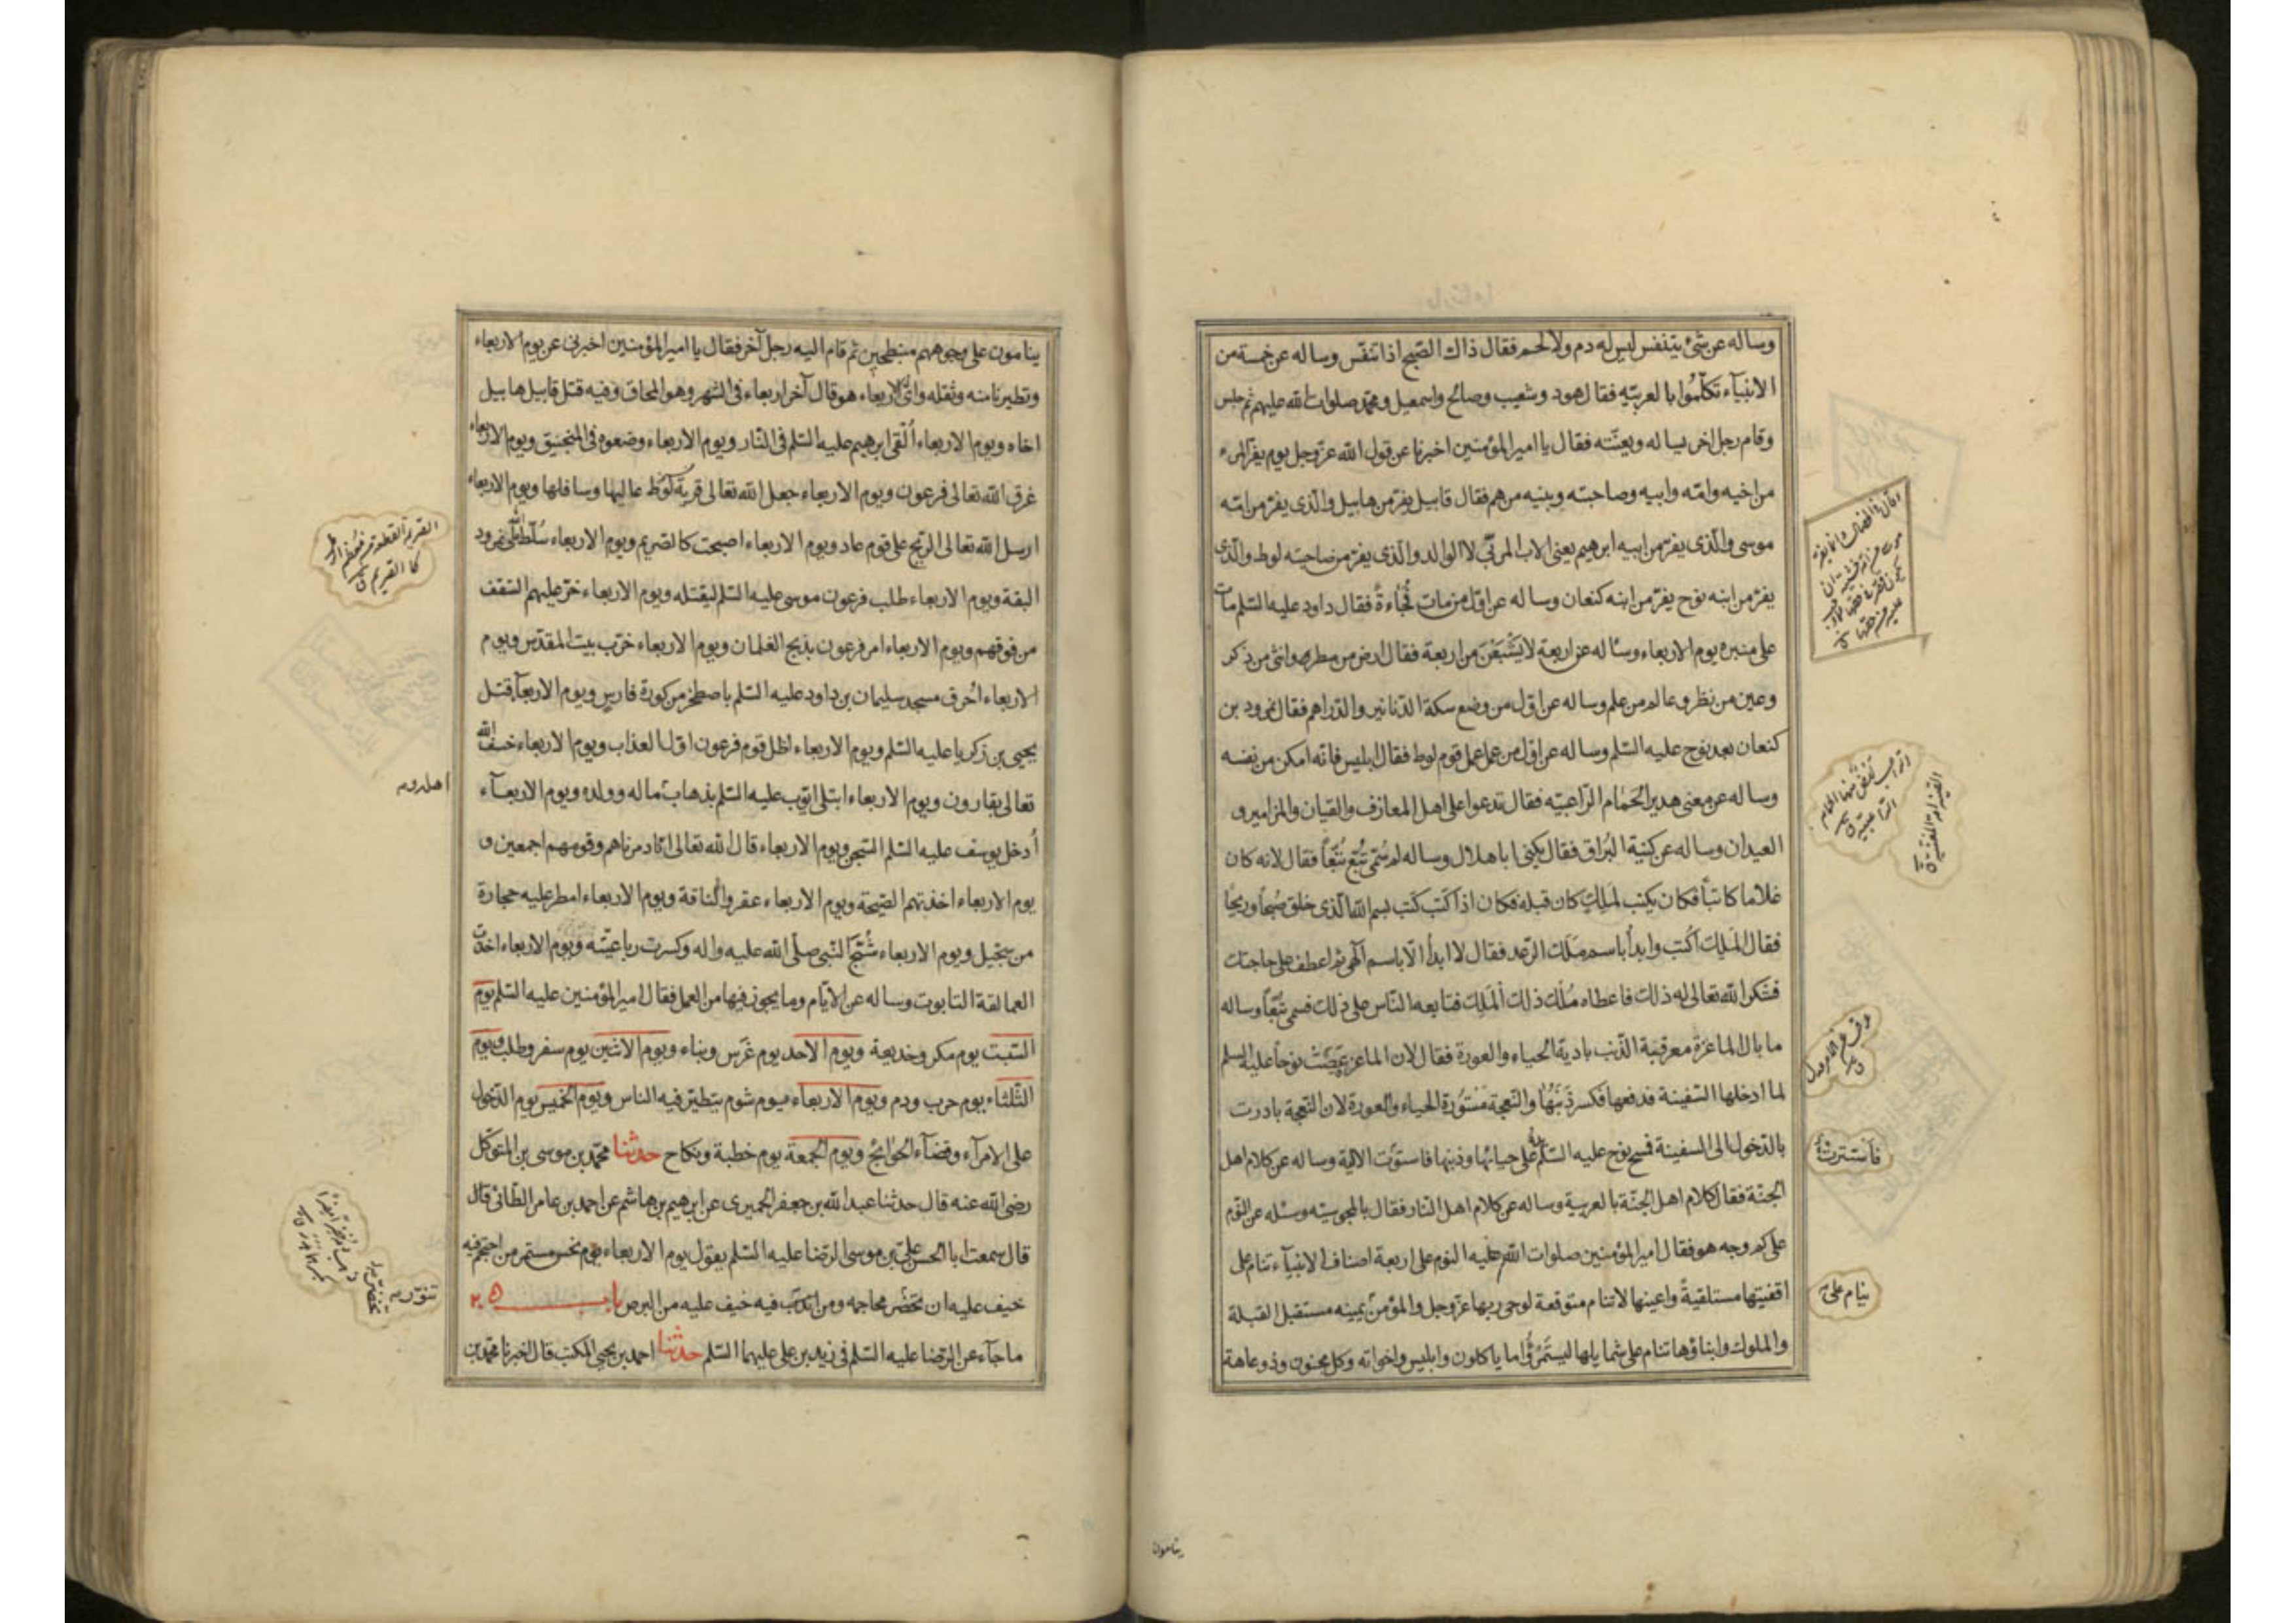 وساله عن شئ يتنفس ليس له دم ولا لحم فقال ذاك الصّبح اذا تنفّس وساله عن خمسة من
الانبيآء تكلّموا بالعربيّه فقال هود وشعيب وصالح واسمعيل ومحمّد صلوات الله عليهم ثم جلس
وقام رجل اخر يساله ويعنّته فقال يا امير المؤمنين اخبرنا عن قول الله عزّ وجل يوم يفرّ المرء
من اخيه وامّه وابيه وصاحبته وبنيه من هم فقال قابيل يفرّ من هابيل والّذى يفرّ من امّه
موسى والّذى يفرّ من ابيه ابرهيم يعنى الاب المربّى لا الوالد والّذى يفرّ من صاحبته لوط والّذى
يفرّ من ابنه نوح يفرّ من ابنه كنعان وساله عن اوّل من مات فُجْاءةً فقال داود عليه السّلم مات
على منبره يوم الاربعاء وساله عن اربعة لا يَشْبَعْنَ من اربعة فقال ارض من مطر وانثى من ذكر
وعين من نظر وعالم من علم وساله عن اوّل من وضع سكة الدّنانير والدّراهم فقال نمرود بن
كنعان بعد نوح عليه السّلم وساله عن اوّل من عمل عمل قوم لوط فقال ابليس فانّه امكن من نفسه
وساله عن معنى هدير الحَمام الرّاعبيّه فقال تدعوا على اهل المعازف والقيان والمزامير و
العيدان وساله عن كنية البُراق فقال يكنى ابا هلال وساله لم سُمّى تُبّع تُبّعاً فقال لانه كان
غلاما كاتباً فكان يكتب لملِكٍ كان قبله فكان اذا كتب كتب بسم الله الّذى خلق صُبحاً وريحًا
فقال الملِك اكُتب وابدأ باسم مَلَك الرّعد فقال لا ابدأ الّا باسم الٓهى ثم اعطف على حاجتك
فشكر الله تعالى له ذلك فاعطاه مُلْك ذلك الملِك فتابعه النّاس على ذلك فسمى تُبّعاً وساله
ما بال الماعزة معرقبة الذّنب بادية الحياء والعورة فقال لان الماعز عَصَتْ نوحاً عليه السلم
لما ادخلها السّفينة فدفعها فكسر ذَنَبَهُا والنّعجة مَسْتُورة الحياء والعورة لان النّعجة بادرت
بالدّخول الى السفينة فمسح نوح عليه السّلم يده على حيائها وذنبها فاستوت الالية وساله عن كلام اهل
الجنّة فقال كلام اهل الجنّة بالعربية وساله عن كلام اهل النّار فقال بالمجوسيّه وسئله عن النّوم
على كم وجه هو فقال امير المؤمنين صلوات الله عليه النوم على اربعة اصناف الانبيآء تنام على
اقفيتها مستلقيةً واعينها لا تنام متوقعة لوحى ربها عزّ وجل والمؤمن يمينه مستقبل القبلة
والملوك وابناؤها تنام على شمايلها ليستَمْرؤُا ما ياكلون وابليس واخواته وكل مجنون وذو عاهة
فاَسْتترتْ
ينام على
ينامون
ينامون على وجوههم منبطحين ثم قام اليه رجل آخر فقال يا امير المؤمنين اخبرنى عن يوم الاربعاء
وتطيرنا منه وثقله واىّ الاربعاء هو قال آخر اربعاء فى الشهر وهو المحاق وفيه قتل قابيل هابيل
اخاه ويوم الاربعاء اُلقى ابرهيم عليه السّلم فى النّار ويوم الاربعاء وضعوه فى المنجنيق ويوم الاربعاء
غرق الله تعالى فرعون ويوم الاربعاء جعل الله تعالى قرية لُوط عاليها وسافلها ويوم الاربعاء
ارسل الله تعالى الريح على قوم عاد ويوم الاربعاء اصبحت كالصّريم ويوم الاربعاء سُلّط الله على نمرود
البقة ويوم الاربعاء طلب فرعون موسى عليه السّلم ليقتله ويوم الاربعاء خرّ عليهم السّقف
من فوقهم ويوم الاربعاء امر فرعون بذبح الغلمان ويوم الاربعاء خرّب بيت المقدّس ويوم
الاربعاء اُحرق مسجد سليمان بن داود عليه السّلم باصطخر من كورة فارس ويوم الاربعآء قتل
يحيى بن زكريا عليه السّلم ويوم الاربعاء اظل قوم فرعون اوّل العذاب ويوم الاربعاء خسف الله
تعالى بقارون ويوم الاربعاء ابتلى ايّوب عليه السّلم بذهاب ماله وولده ويوم الاربعآء
اُدخل يوسف عليه السّلم السّجن ويوم الاربعاء قال الله تعالى انّا دمرناهم وقومهم اجمعين و
يوم الاربعاء اخذتهم الصّيحة ويوم الاربعاء عقروا النّاقة ويوم الاربعاء امطر عليه حجارة
من سجّيل ويوم الاربعاء شُجّ النّبى صلّى الله عليه واله وكسرت رباعيّته ويوم الاربعاء اخذت
العمالقة التابوت وساله عن الايّام وما يجوز فيها من العمل فقال امير المؤمنين عليه السّلم يوم
السّبت يوم مكر وخديعة ويوم الاحد يوم غَرْس وبناء ويوم الاثنين يوم سفر وطلب ويوم
الثّلثاء يوم حرب ودم ويوم الاربعاء يوم شوم يتطيّر فيه الناس ويوم الخميس يوم الدّخول
على الامرآء وقضآء الحَوائج ويوم الجمعة يوم خطبة ونكاح حدثنا محمّد بن موسى بن المتوكّل
رضى الله عنه قال حدثنا عبد الله بن جعفر الحميرى عن ابرهيم بن هاشم عن احمد بن عامر الطّائى قال
قال سمعت ابا الحسن علىّ بن موسى الرّضا عليه السّلم يقول يوم الاربعاء يوم نحس مستمر من احتجم فيه
خيف عليه ان تخضر محاجمه ومن تنوّر فيه خيف عليه من البرص باب
ما جآء عن الرّضا عليه السّلم فى زيد بن على عليهما السّلم حدثنا احمد بن يحيى المكتب قال اخبرنا محمّد بن
تنوّر